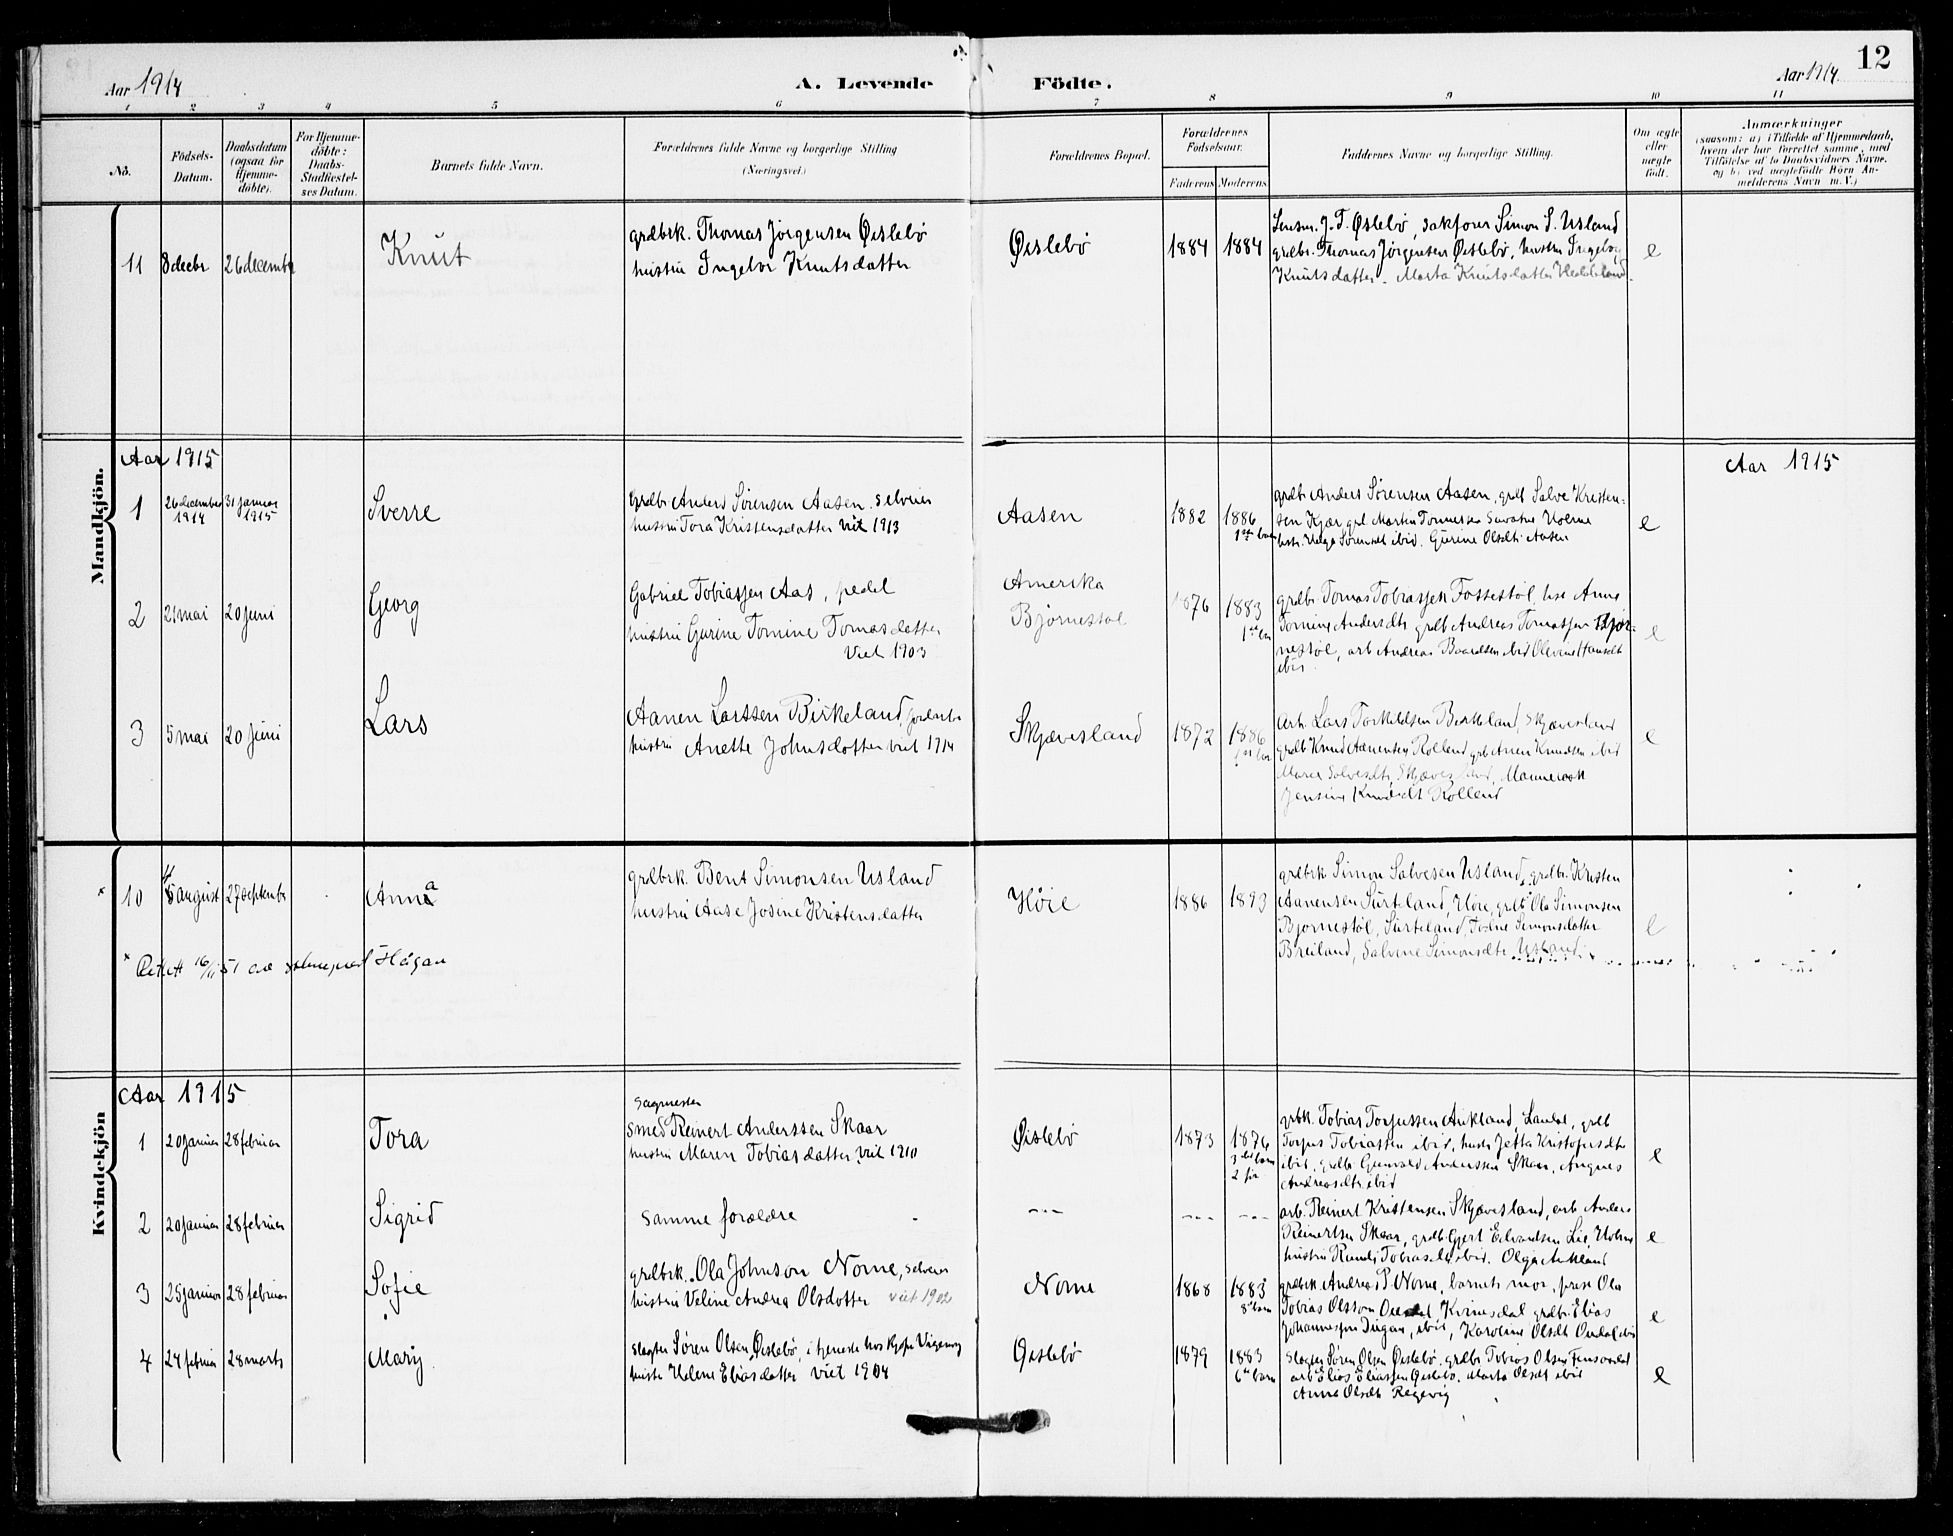 12
Aar 1914
A. Levende Födte.
Aar 1914
1 2 3 4 5 6 7 8 9 10 11
No.
Födsels-
Datum.
Daabsdatum
(ogsaa for
Hjemme-
döbte).
For Hjemme-
döbte:
Daabs-
Stadfæstel-
ses Datum.
Barnets fulde Navn.
Forældrenes fulde Navne og borgerlige Stilling
(Næringsvei.)
Forældrenes Bopæl.
Forældrenes
Födselsaar.
Faderens Moderens
Faddernes Navne og borgerlige Stilling.
Om ægte
eller
uægte
födt.
Anmærkninger
(saasom: a) i Tilfælde af Hjemmedaab,
hvem der har forrettet samme, med
Tilföielse af to Daabsvidners Navne.
og b) ved uægtefödte Börn An-
melderens Navn m. V.)
Mandkjön.
11 8 decbr 26 december
Knut
grdbrk. Thomas Jörgensen Øislebö
hustru Ingebor Knutsdatter
Øislebö
1884 1884
Lensm. J. T. Øslebö, sakförer Simon S. Usland
grdbr. Thomas Jörgensen Øislebö, hustru Ingeborg
Knutsdatter. Marta Knutsdatter
e
Aar 1915
Aar 1915
1 26 december 1914 31 januar 1915
Sverre
grdbr. Anders Sörensen Aasen, selveier
hustru Tora Kristensdatter viet 1913
Aasen
1882 1886
1ste barn
grdbr Anders Sörensen Aasen, grdb Salve Kristen-
sen Kjær, Martin Holme
Sörensdt ibid. Gurine Olsdt. Aasen
e
2 21 mai 20 juni
Georg
Gabriel Tobiassen Aas, pedel
hustru Gurine Tomine Tomasdatter
Viet 1903
Amerika
Bjørnestøl
1876 1883
grdbr. Tomas Tobiassen Fossestöl, Anne
Tomine Andersdtr grdb Andreas Tomassen Bjør-
nestöl, arb Andreas Baardsen ibid Hansdt
ibid.
e
3 5 mai 20 juni
Lars
Aanen Larssen Birkeland,
hustru Anette Johnsdatter viet 1914
Skjævesland
1872 1886
arb. Lars Torkeldsen Birkeland, Skjævesland
grdb Knud Aanensen Rolland Knudsen ibid
Maren Salvesdtr, Skjævesland,
Jensine Knudsdt Rolland
e
Kvindekjön
* 10 5 august 27 september
Anna
grdbrk. Bent Simonsen Usland
hustru Aase Josine Kristensdatter
Høie
1886 1893
grdbrk Simon Salvesen Usland, grdbr. Kristen
Aanensen Surteland, Höie, grdb Ola Simonsen
Bjørnestöl, Surteland, Simonsdatter
Breiland, Salvine Simonsdtr. Usland
e
* Rettet 16/11 51 av sokneprest Hågan
Aar 1915
1 20 januar 28 februar
Tora
Sagmester
smed Reinert Anderssen Skaar
hustru Maren Tobiasdatter, viet 1910
Øislebö
1873 1876
grbk. Tobias Torjussen Aukland, Laudal, grdb
Torjus Tobiassen ibid, hustr Jetta Kristofersdtr
ibid, grdbr. Gunvald Anderssen Skaar, Angnes
Andreasdtr. ibid
e
2 20 januar 28 februar
Sigrid
samme forældre
---
--- ---
arb. Reinert Kristensen Skjævesland, arb. Anders
Reinertsen Skaar, grdb Gjert Edvardsen Lie, Holme
hustru Tobiasdt ibid. Olga Aukland
e
3 25 januar 28 februar
Sofie
grdbrk. Ola Johnson Nome, selveier
hustru Veline Andrea Olsdatter viet 1902
Nome
1868 1883
8de barn
grdbrk Andreas P. Nome, barnets mor, Ola
Tobias Olsson Kvinesdal grdbr. Elias
Johannessen ibid, Karoline Olsdt
e
4 24 februar 28 marts
Mary
slagter Sören Olsen Øislebö, i tjeneste hos
hustr Helene Eliasdatter viet 1904
Øislebö
1879 1883
6te barn
slagter Sören Olsen Øislebö, grdbr Tobias Olsen
arb Elias Eliassen Øislebö. Marta Olsdt ibid
Anne Olsdt Regevig
e